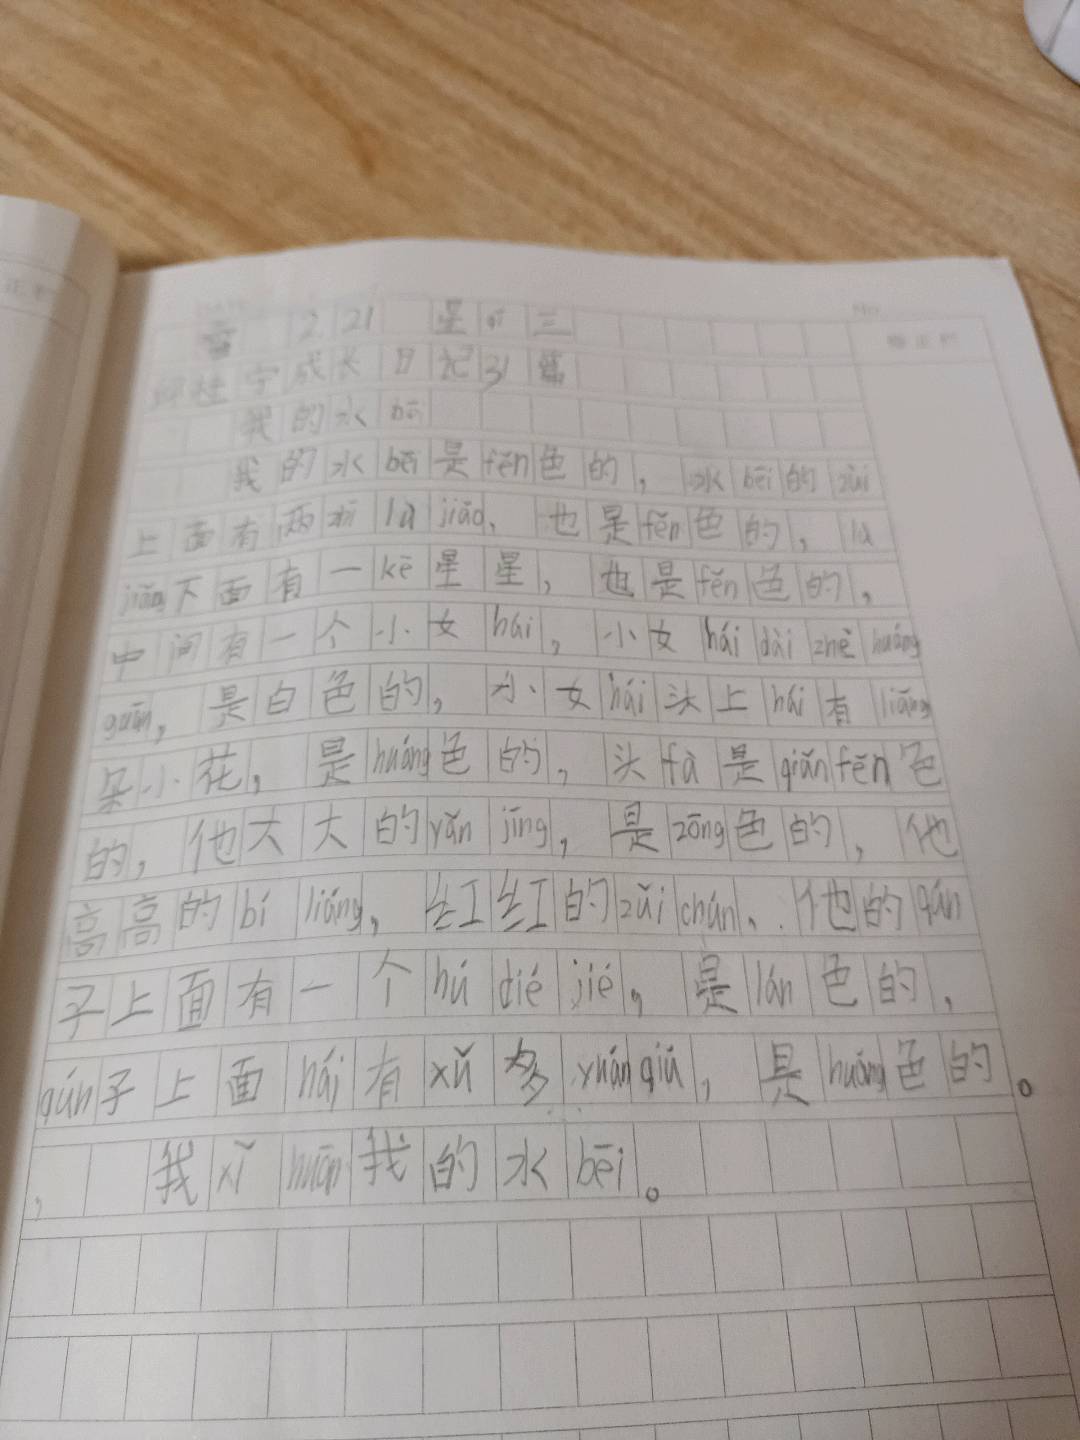 雪 2 21 星qī三
宁成长日记31篇
我的水bēi
我的水bēi是fěn色的，水bēi的zùi
上面有两 là jiāo、也是fěn色的，là
jiāo下面有一kē星星，也是fěn色的，
中间有一个小女hái，小女hái dài zhě huáng
guān，是白色的，小女hái头上hái有liǎng
朵小花，是huáng色的，头fà是qiǎn fěn色
的，他大大的yǎn jīng，是zōng色的，他
高高的bí liáng，红红的zuǐ chún、他的qún
子上面有一个hú dié jié，是lán色的，
qún子上面hái有xǔ多yuán qiú，是huáng色的。
我xǐ huān我的水bēi。